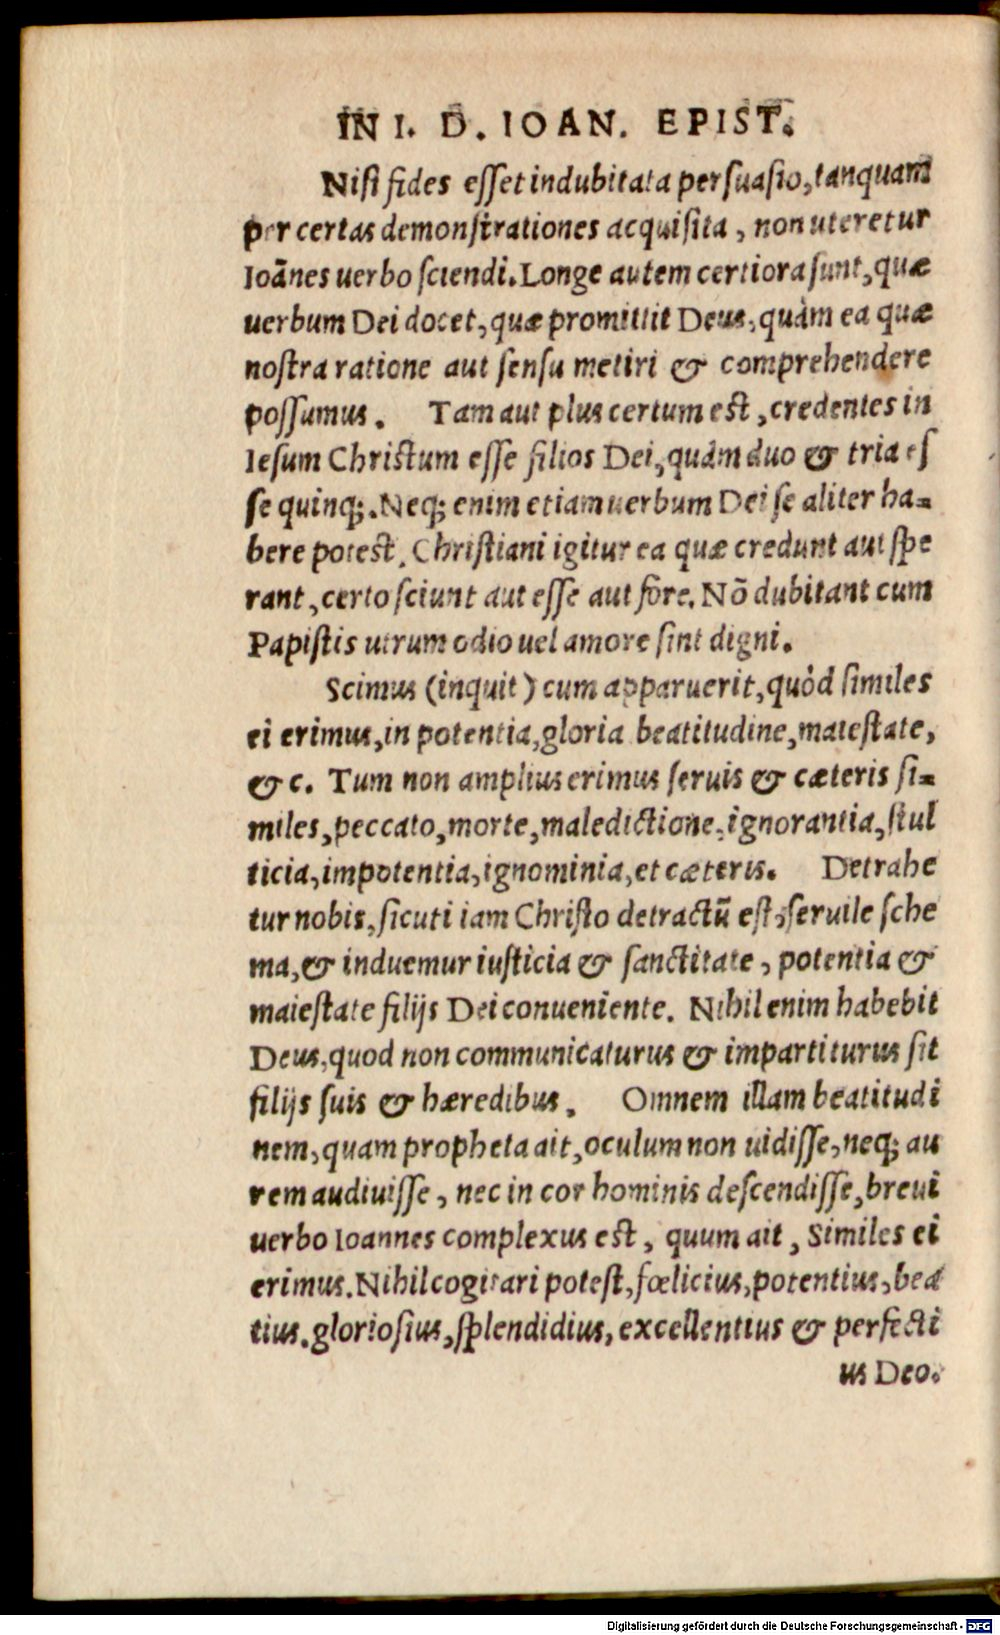 IN I. D. IOAN. EPIST.
Nisi fides esset indubitata persuasio, tanquam
per certas demonstrationes acquisita, non uteretur
Ioānes uerbo sciendi. Longe autem certiora sunt, quæ
uerbum Dei docet, quæ promittit Deus, quàm ea quæ
nostra ratione aut sensu metiri & comprehendere
possumus. Tam aut plus certum est, credentes in
Iesum Christum esse filios Dei, quàm duo & tria es
se quinq;. Neq; enim etiam uerbum Dei se aliter ha-
bere potest. Christiani igitur ea quæ credunt aut spe
rant, certo sciunt aut esse aut fore. Nō dubitant cum
Papistis utrum odio uel amore sint digni.
Scimus (inquit) cum apparuerit, quòd similes
ei erimus, in potentia, gloria beatitudine, maiestate,
& c. Tum non amplius erimus seruis & cæteris si-
miles, peccato, morte, maledictione, ignorantia, stul
ticia, impotentia, ignominia, et cæteris. Detrahe
tur nobis, sicuti iam Christo detractū est, seruile sche
ma, & induemur iusticia & sanctitate, potentia &
maiestate filijs Dei conueniente. Nihil enim habebit
Deus, quod non communicaturus & impartiturus sit
filijs suis & hæredibus. Omnem illam beatitudi
nem, quam propheta ait, oculum non uidisse, neq; au
rem audiuisse, nec in cor hominis descendisse, breui
uerbo Ioannes complexus est, quum ait, Similes ei
erimus. Nihil cogitari potest, fœlicius, potentius, bea
tius. gloriosius, splendidius, excellentius & perfecti
us Deo.
Digitalisierung gefördert durch die Deutsche Forschungsgemeinschaft - DFG